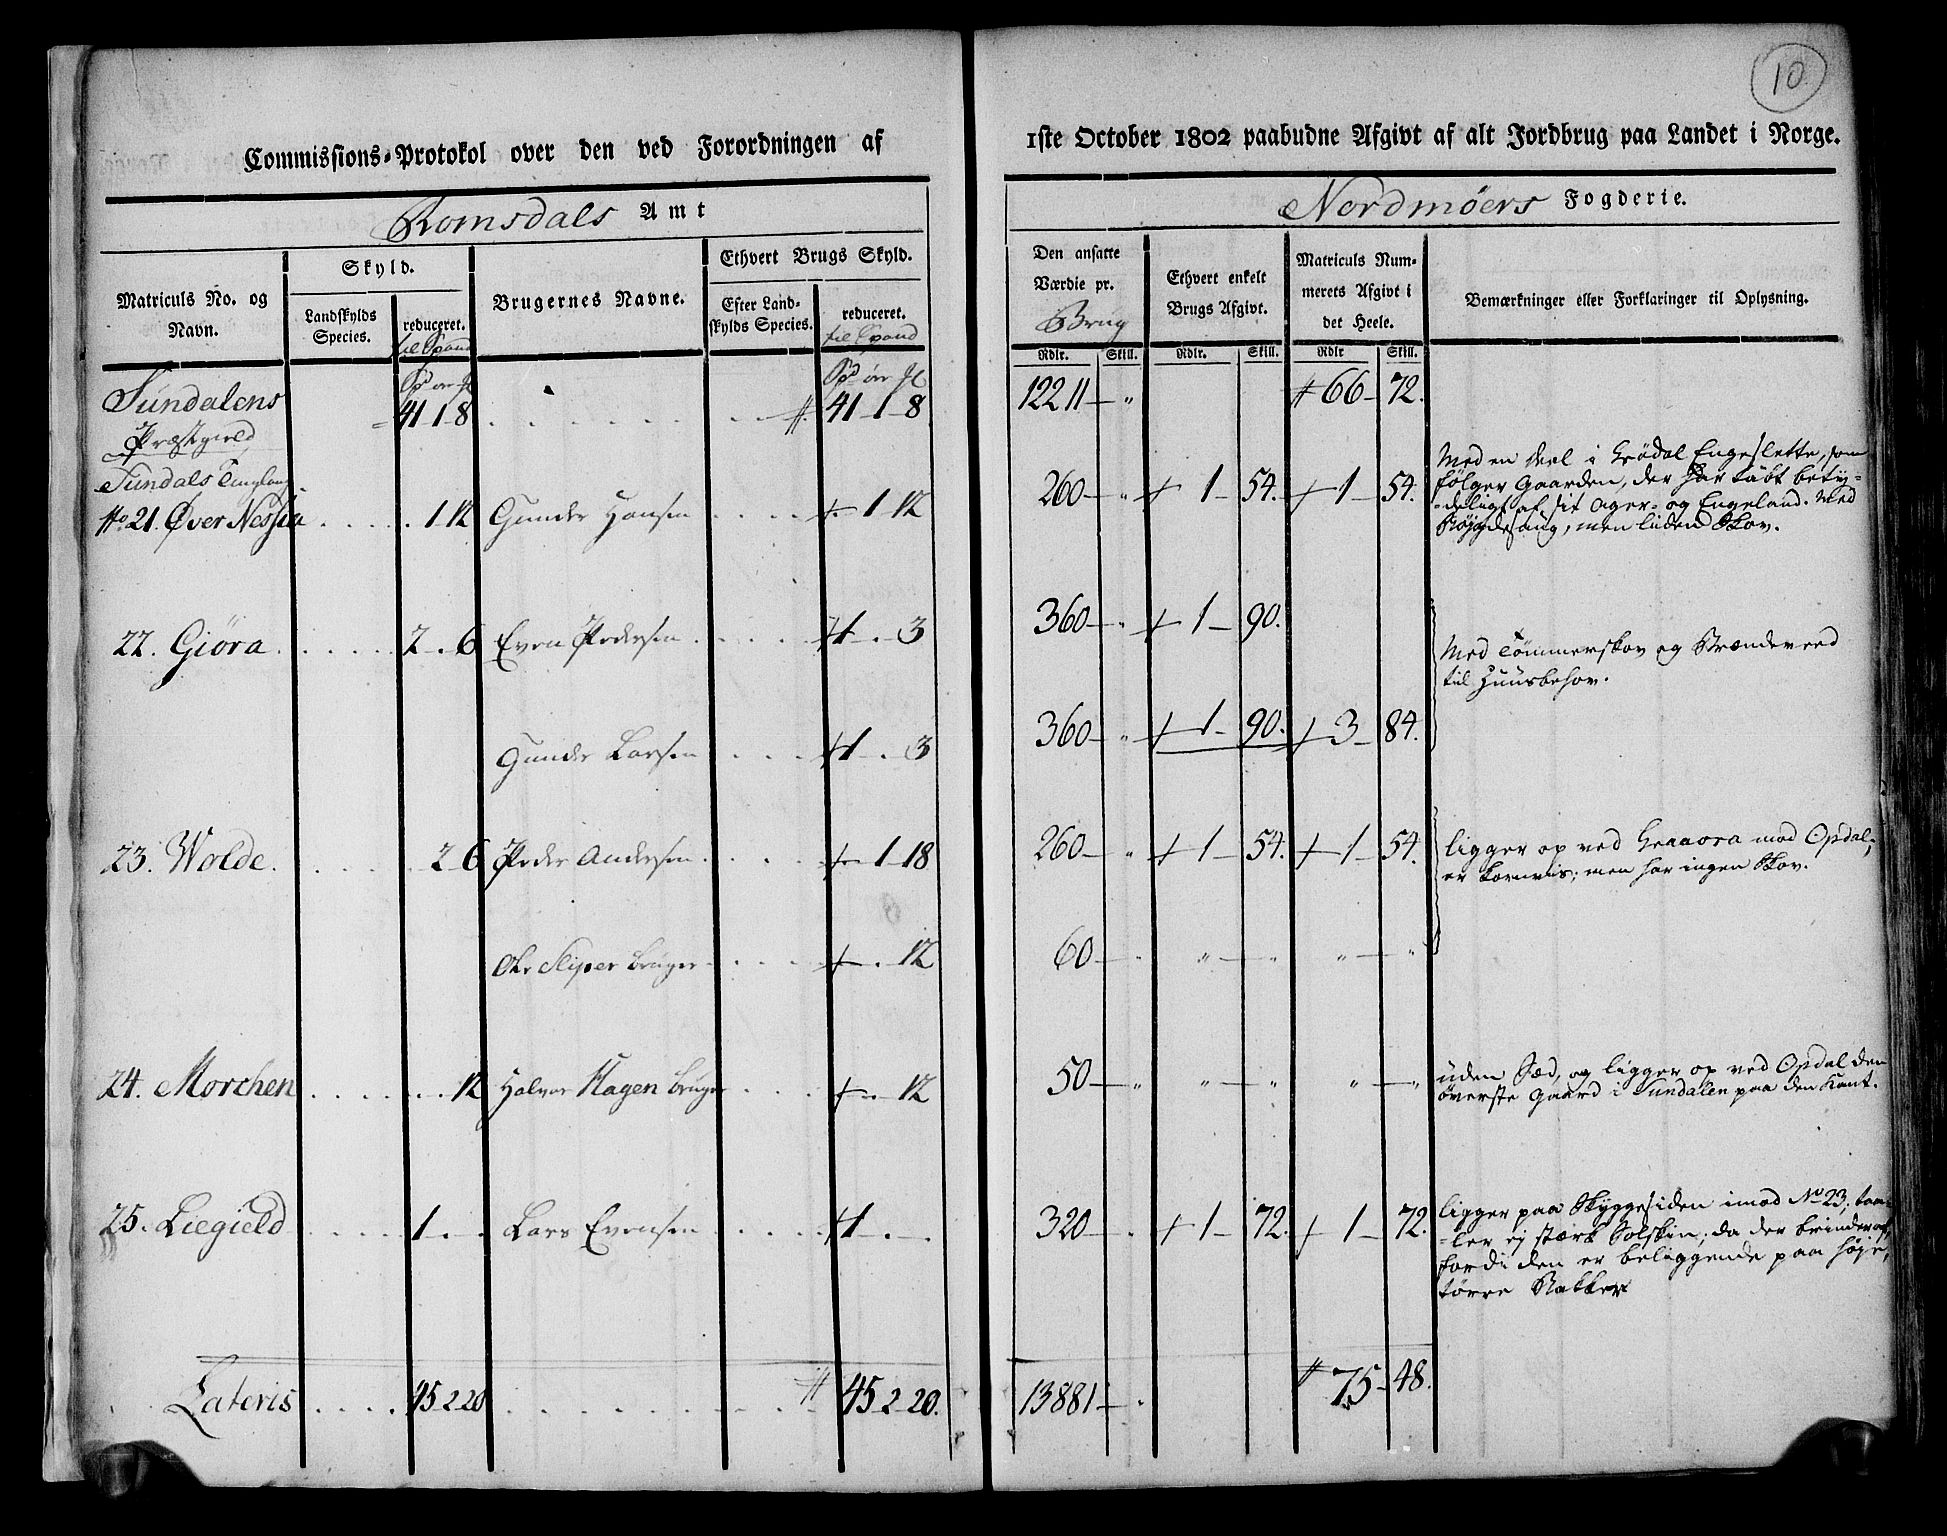 10
Commissions-Protokol over den ved Forordningen af 1ste October 1802 paabudne Afgivt af alt Jordbrug paa Landet i Norge.
Romsdals Amt
Nordmøers Fogderie.
Matriculs No. og Navn.
Skyld.
Landskylds Species.
reduceret. til Spand
Brugernes Navne.
Ethvert Brugs Skyld.
Efter Landskylds Species.
reduceret. til Spand
Den ansatte Værdie pr. Brug
Ethvert enkelt Brugs Afgivt.
Matriculs Nummerets Afgivt i det Heele.
Bemærkninger eller Forklaringer til Oplysning.
Rdlr. Skill. Rdlr. Skill. Rdlr Skill.
Sundalens 41-1-8 41-1-8 12211 - " 66-72.
Præstgield
Sundals Tinglaug
No 21. Øver Nessja 1 12 Gunder Hansen 1-12 260 - " 1-54. 1-54.
Med en Deel i Grødal Engeslette, som
følger Gaarden, der har tabt bety-
-deligt af sit Ager- og Engeland. Med
men uden Skov.
22. Giøra 2 . 6 Even Pedersen 1 . 3 360 - " 1-90.
Gunder Larsen 1 . 3 360 - " 1-90. 3-84.
Med Tømmerskov og Brændeveed
til Huusbehov.
23. Wolde. 2 6 Peder Andersen 1-18 260 - " 1-54. 1-54.
Ole Sliper bruger . 12 60 - " " - " " - "
ligger op ved mod Opdal,
er kornviis; men har ingen Skov.
24. Morchen 12 Halvor Hagen bruger . 12 50 - " " - " " - "
uden Sæd, og ligger op ved Opdal den
øverste Gaard i Sundalen paa den Kant.
25. Liegield 1 . . Lars Evensen 1 . . 320 - " 1-72. 1-72.
ligger paa Skyggesiden imod No 23; taa-
-ler ej stærk Solskin, da der brinder af,
fordi den er beliggende paa høje,
tørre Bakker
Lateris 45 2 20 45-2-20. 13881 - " 75-48.